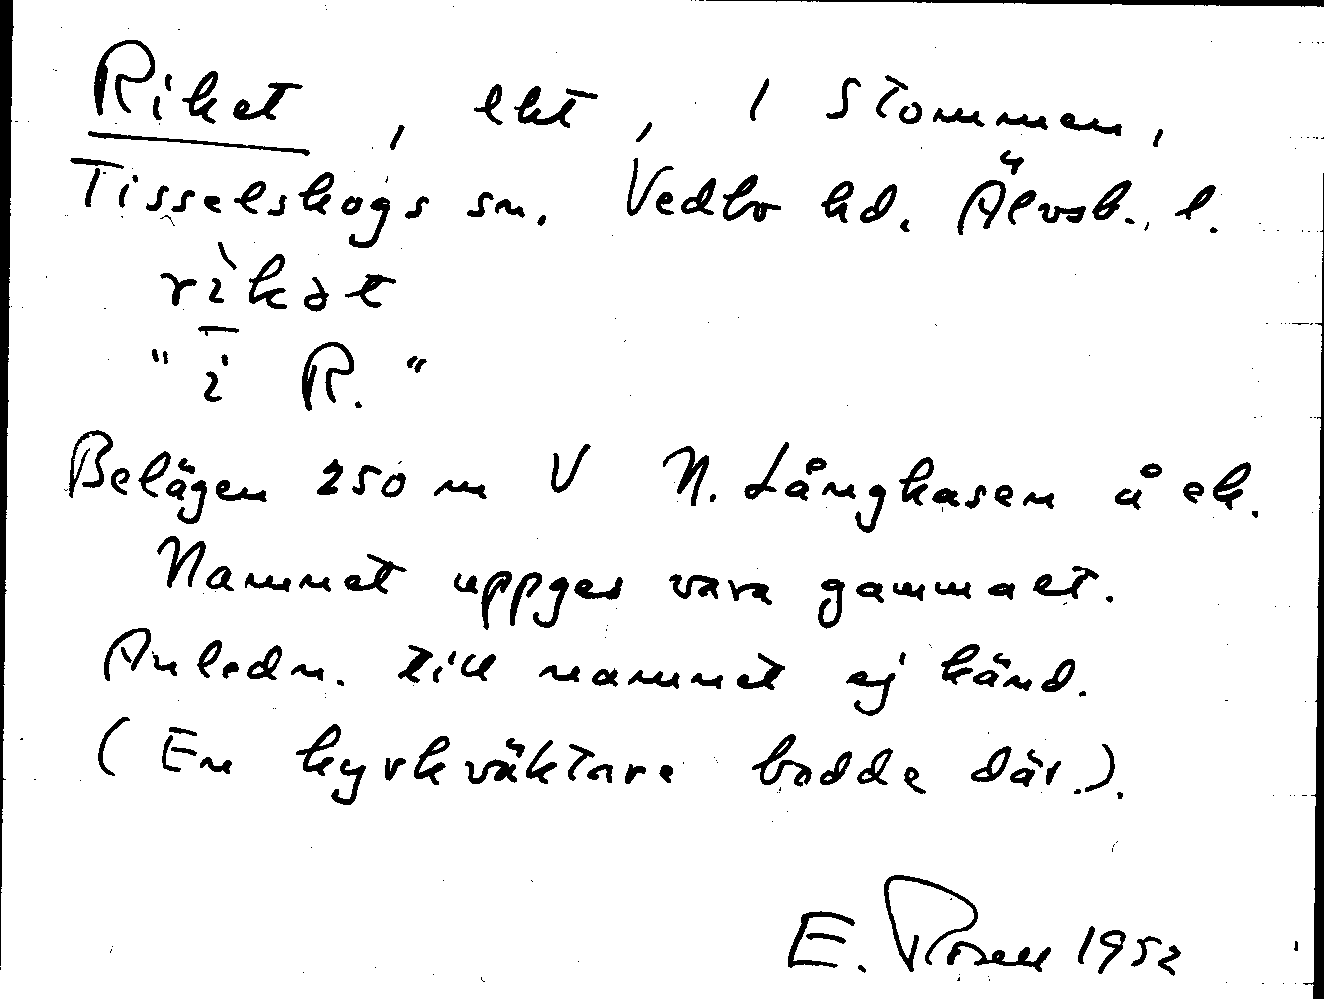 Riket, lht, 1 Stommen,
Tisselskogs sn. Vedbo hd. Älvsb. l.
rìkət
"i R."
Belägen 250 m V N. Långhasen å ek.
Namnet uppges vara gammalt.
Anledn. till namnet ej känd.
(En kyrkväktare bodde där.).
E. Rosell 1952